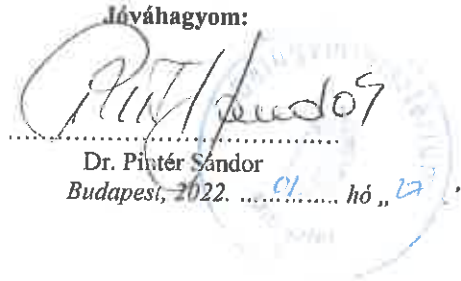 Jóváhagyom:
Dr. Pintér Sándor
Budapest, 2022. ....01....... hó „ 27 ."